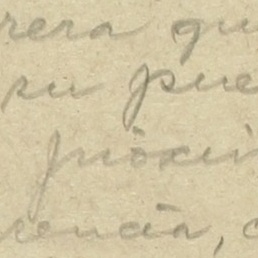 rera qu
su pue
próxi
rencia, c